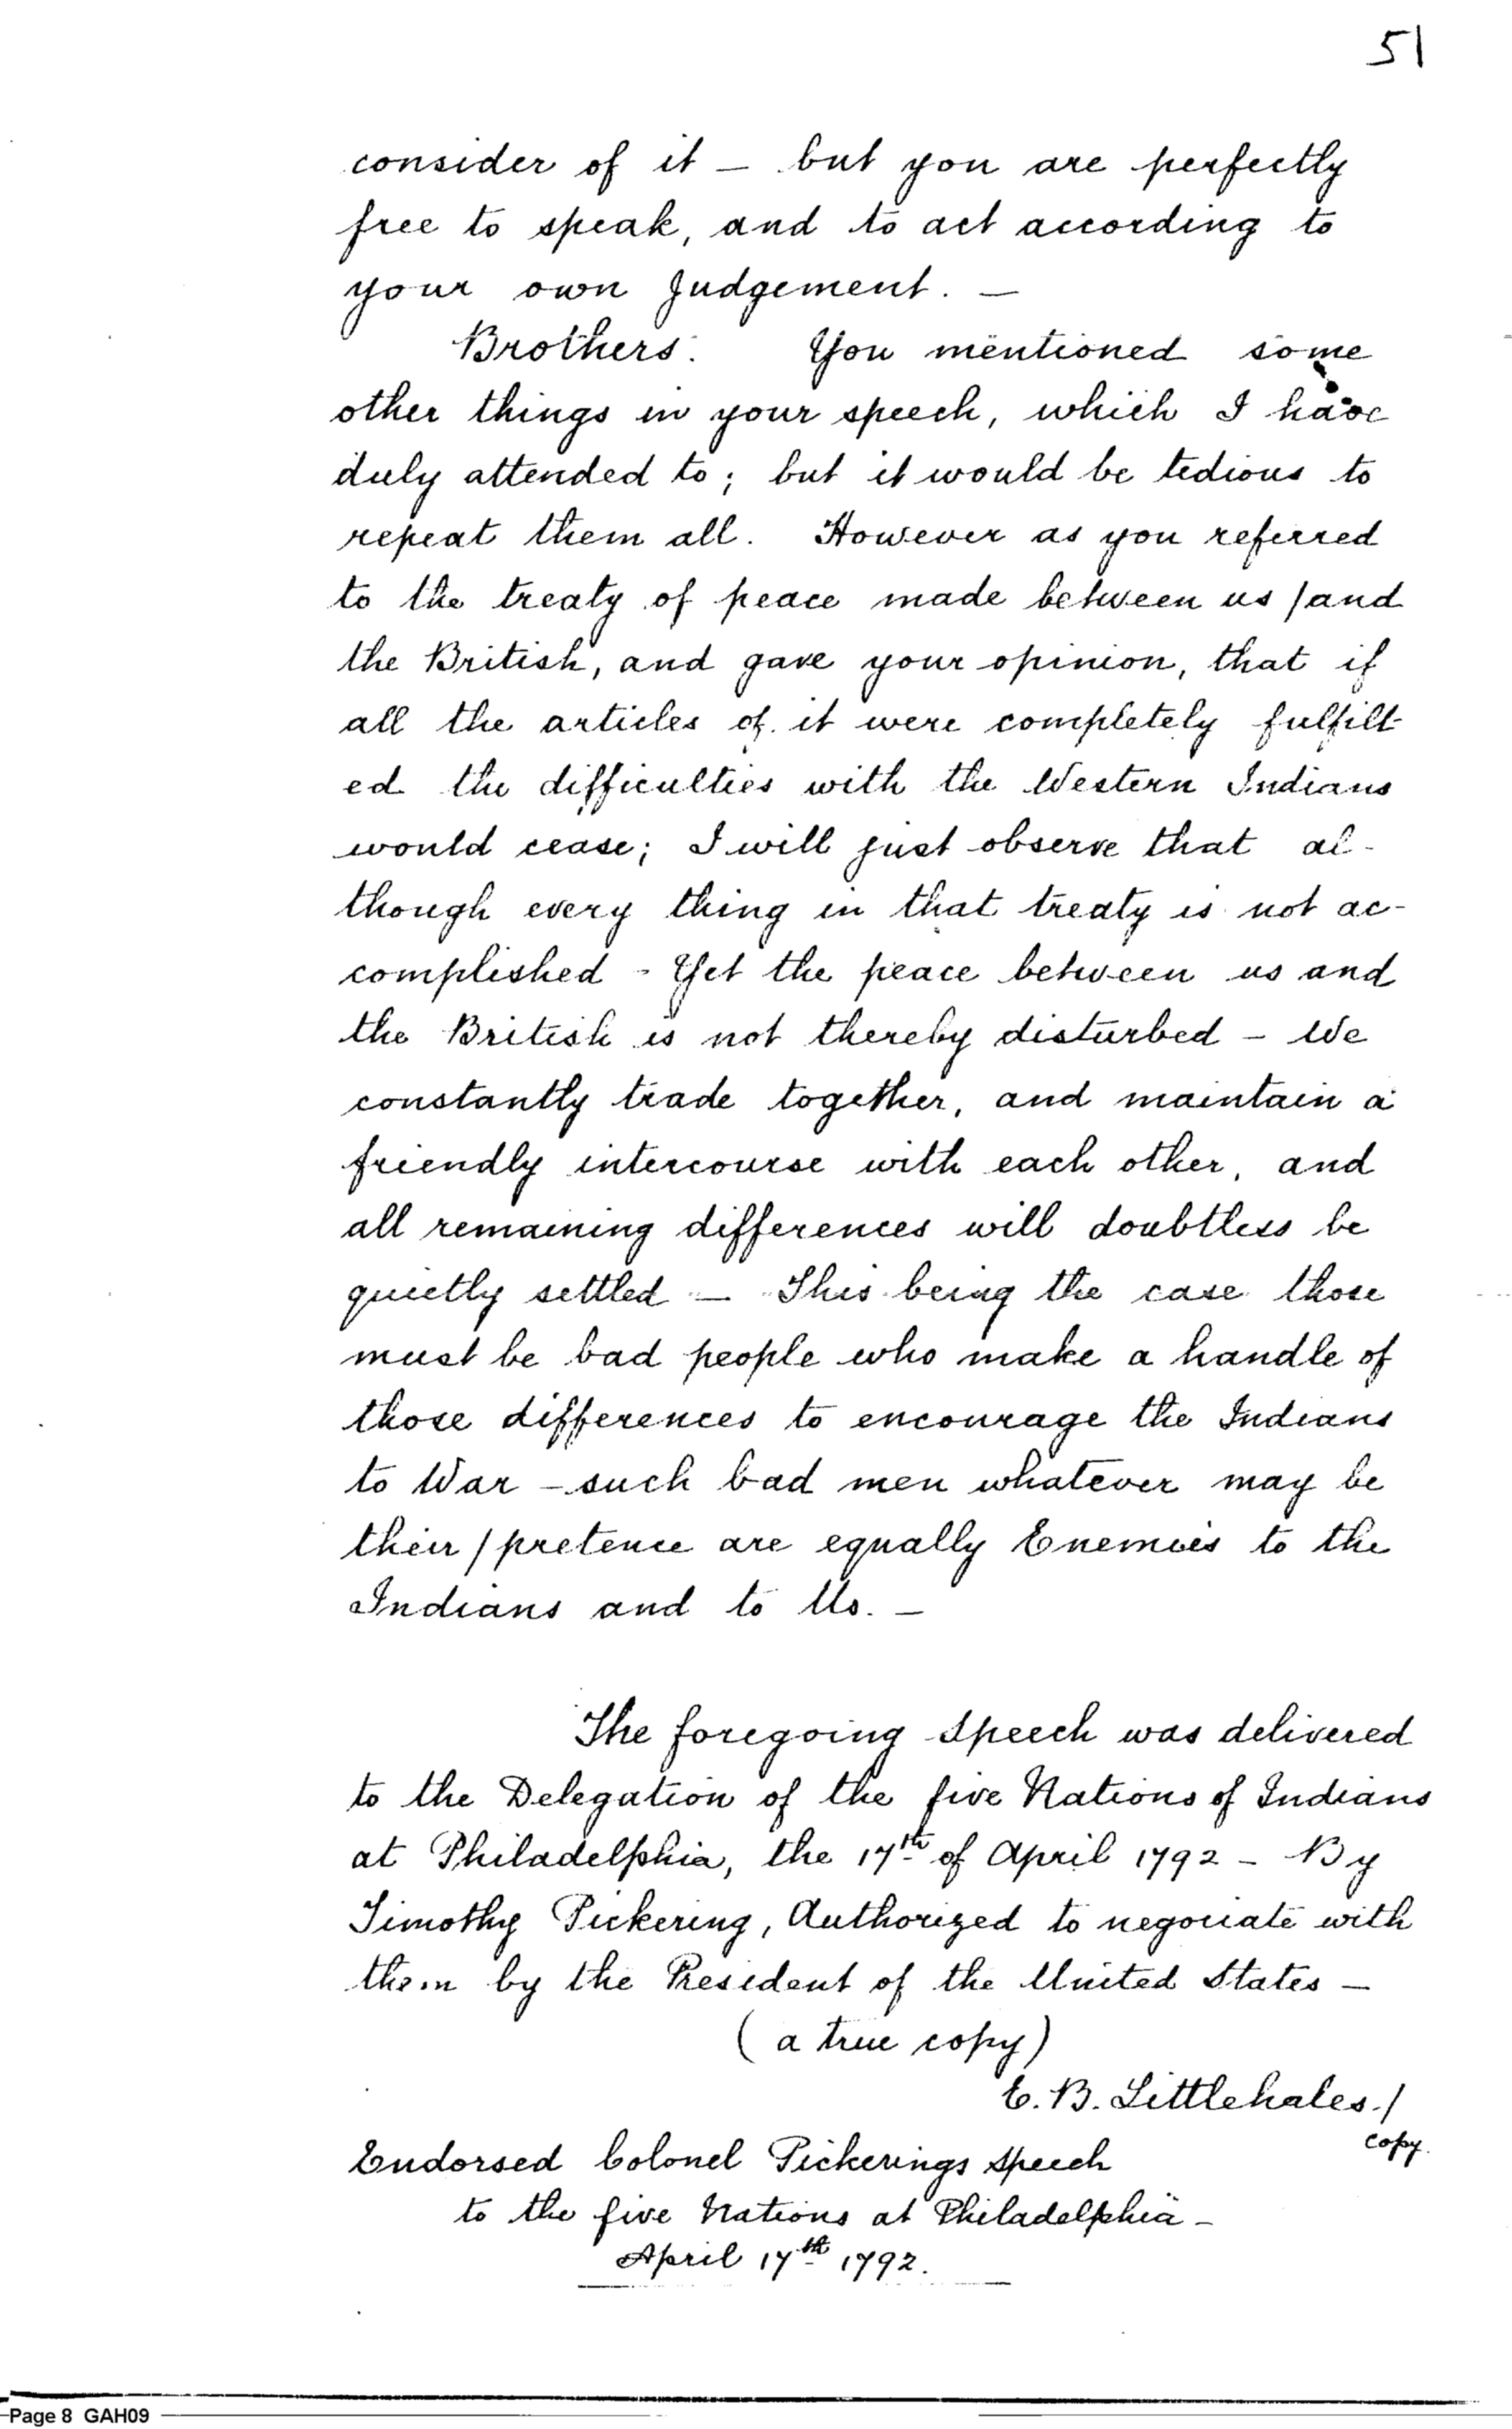 51
consider of it — but you are perfectly
free to speak, and to act according to
your own Judgement. —
Brothers. You mentioned some
other things in your speech, which I have
duly attended to; but it would be tedious to
repeat them all. However as you referred
to the treaty of peace made between us / and
the British, and gave your opinion, that if
all the articles of it were completely fulfill-
ed the difficulties with the Western Indians
would cease; I will just observe that al-
though every thing in that treaty is not ac-
complished - Yet the peace between us and
the British is not thereby disturbed - We
constantly trade together, and maintain a
friendly intercourse with each other, and
all remaining differences will doubtless be
quietly settled — This being the case those
must be bad people who make a handle of
those differences to encourage the Indians
to War - such bad men whatever may be
their / pretence are equally Enemies to the
Indians and to Us. —
The foregoing Speech was delivered
to the Delegation of the five Nations of Indians
at Philadelphia, the 17th of April 1792 - By
Timothy Pickering, Authorized to negociate with
them by the President of the United States —
( a true copy )
E. B. Littlehales. /
copy.
Endorsed Colonel Pickerings Speech
to the five Nations at Philadelphia -
April 17th 1792.
Page 8 GAH09